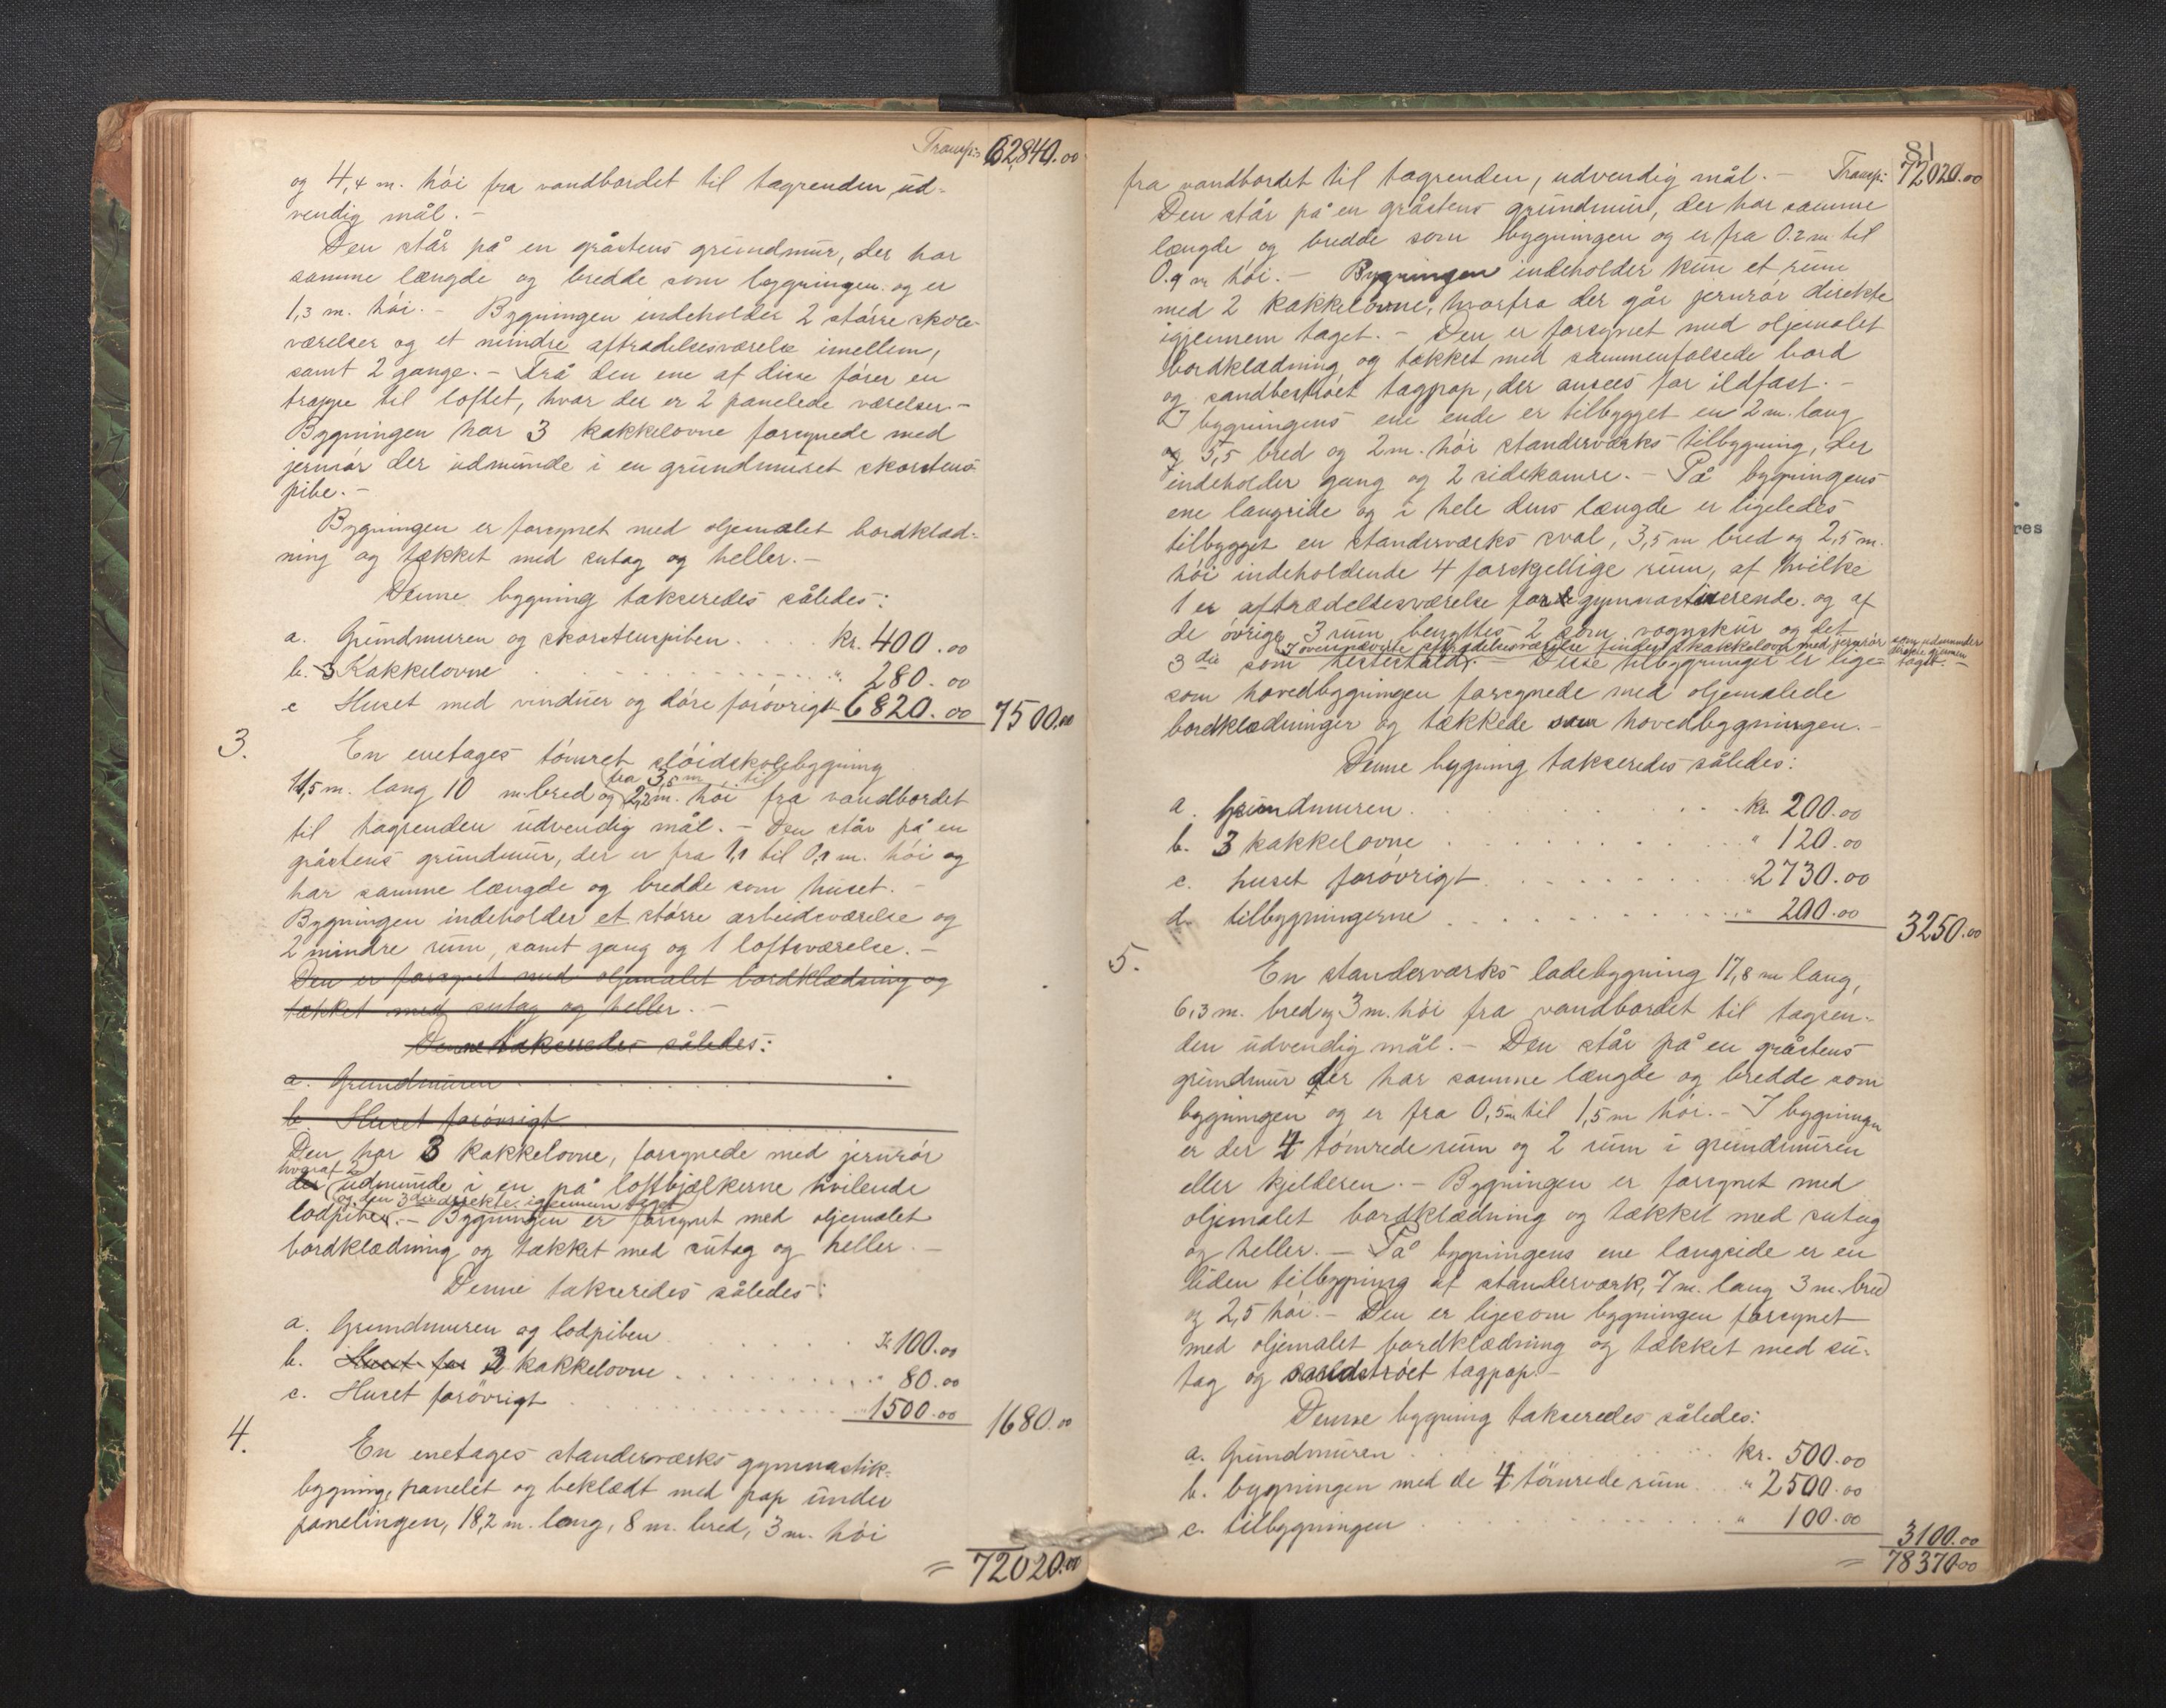 Transp: 62840.00
og 4,4 m. hói fra vandbordet til tagrenden, ud-
vendig mål. -
Den står på en gråstens grundmur, der har
samme længde og bredde som bygningen og er
1,3 m. hói. - Bygningen indeholder 2 större skole-
værelser og et mindre aftrædelsesværelse imellem,
samt 2 gange. - Frå den ene af disse fórer en
trappe til loftet, hvor der er 2 panelede værelser. -
Bygningen har 3 kakkelovne forsynede med
jernrór der udmunde i en grundmuret skorstens-
pibe. -
Bygningen er forsynet med oljemalet bordklæd-
ning og tækket med sutag og heller. -
Denne bygning takseredes således:
a. Grundmuren og skorstenspiben . . . kr. 400.00
b. 3 Kakkelovne . . . " 280.00
c Huset med vinduer og dóre foróvrigt 6820.00 7500.00
3. En enetages tómret slóidskolebygning
fra 3,5 m. til
11,5 m. lang 10 m. bred og 2,2 m. hói fra vandbordet
til tagrenden udvendig mål. - Den står på en
gråstens grundmur, der er fra 1,1 til 0,1 m. hói og
har samme længde og bredde som huset. -
Bygningen indeholder et större arbeidsværelse og
2 mindre rum, samt gang og 1 loftsværelse. -
Den er forsynet med oljemalet bordklædning og
tækket med sutag og heller. -
Denne takseredes således:
a. Grundmuren . . .
b. Huset foróvrigt . . .
Den har 3 kakkelovne, forsynede med jernrór
hvoraf 2
der udmunde i en på loftbjælkerne hvilende
og den 3die direkte igjennem taget
lodpibe. - Bygningen er forsynet med oljemalet
bordklædning og tækket med sutag og heller. -
Denne takseredes således:
a. Grundmuren og lodpiben . . . Kr 100.00
b. Huset for 3 kakkelovne . . . " 80.00
c. Huset foróvrigt . . . " 1500.00 1680.00
4. En enetages standerværks gymnastik-
bygning, panelet og beklædt med pap under
panelingen, 18,2 m. lang, 8 m. bred, 3 m. hói
= 72020.00
81
fra vandbordet til tagrenden, udvendig mål. - Transp: 72020.00
Den står på en gråstens grundmur, der har samme
længde og bredde som bygningen og er fra 0.2 m til
0.9 m hói. - Bygningen indeholder kun et rum
med 2 kakkelovne, hvorfra der går jernrór direkte
igjennem taget. - Den er forsynet med oljemalet
bordklædning og tækket med sammenfalsede bord
og sandbestróet tagpap, der ansees for ildfast. -
I bygningens ene ende er tilbygget en 2 m. lang
og 5,5 bred og 2 m. hói standerværks tilbygning, der
indeholder gang og 2 sidekamre. - På bygningens
ene langside og i hele dens længde er ligeledes
tilbygget en standerværks sval, 3,5 m bred og 2,5 m.
hói indeholdende 4 forskjellige rum, af hvilke
1 er aftrædelsesværelse for de gymnastiserende og af
de óvrige 3 rum benyttes 2 som vognskur og det
I ovennævnte aftrædelsesværelse findes 1 kakkelovn med jernrór som udmunder direkte gjennem taget. -
3die som hestestald. - Disse tilbygninger er lige-
som hovedbygningen forsynede med oljemalede
bordklædninger og tækkede som hovedbygningen. -
Denne bygning takseredes således:
a. Grundmuren . . . kr. 200.00
b. 3 kakkelovne . . . " 120.00
c. huset foróvrigt . . . " 2730.00
d. tilbygningerne . . . " 200.00 3250.00
5. En standerværks ladebygning 17,8 m lang,
6,3 m. bred og 3 m. hói fra vandbordet til tagren-
den udvendig mål. - Den står på en gråstens
grundmur der har samme længde og bredde som
bygningen og er fra 0,5 m til 1,5 m hói. - I bygningen
er der 4 tómrede rum og 2 rum i grundmuren
eller kjelderen. - Bygningen er forsynet med
oljemalet bordklædning og tækket med sutag
og heller. - På bygningens ene langside er en
liden tilbygning af standerværk, 7 m. lang 3 m. bred
og 2,5 hói. - Den er ligesom bygningen forsynet
med oljemalet bordklædning og tækket med su-
tag og sandstróet tagpap. -
Denne bygning takseredes således:
a. Grundmuren . . . kr. 500.00
b. bygningen med de 4 tömrede rum . . . " 2500.00
c. tilbygningen . . . " 100.00 3100.00
= 78370.00
res